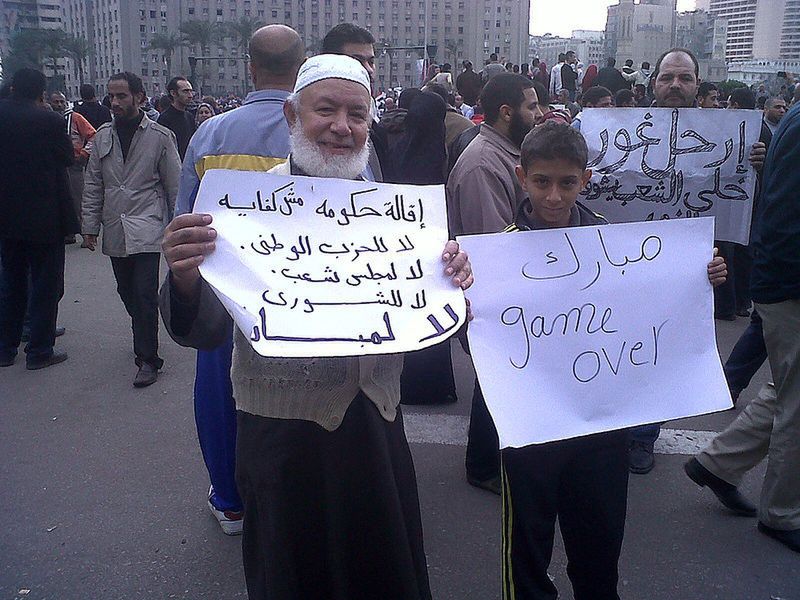 إقالة حكومه مش كفايه
لا للحزب الوطنى.
لا لمجلس شعب.
لا للشورى.
لا لمبارك
مبارك
game
over
إرحل غور
خلى الشعب